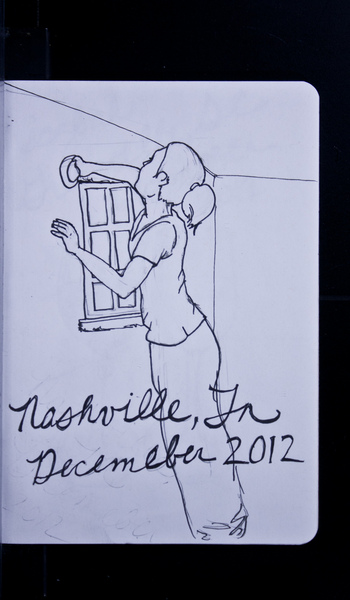 Nashville, Tn
Decemeber 2012